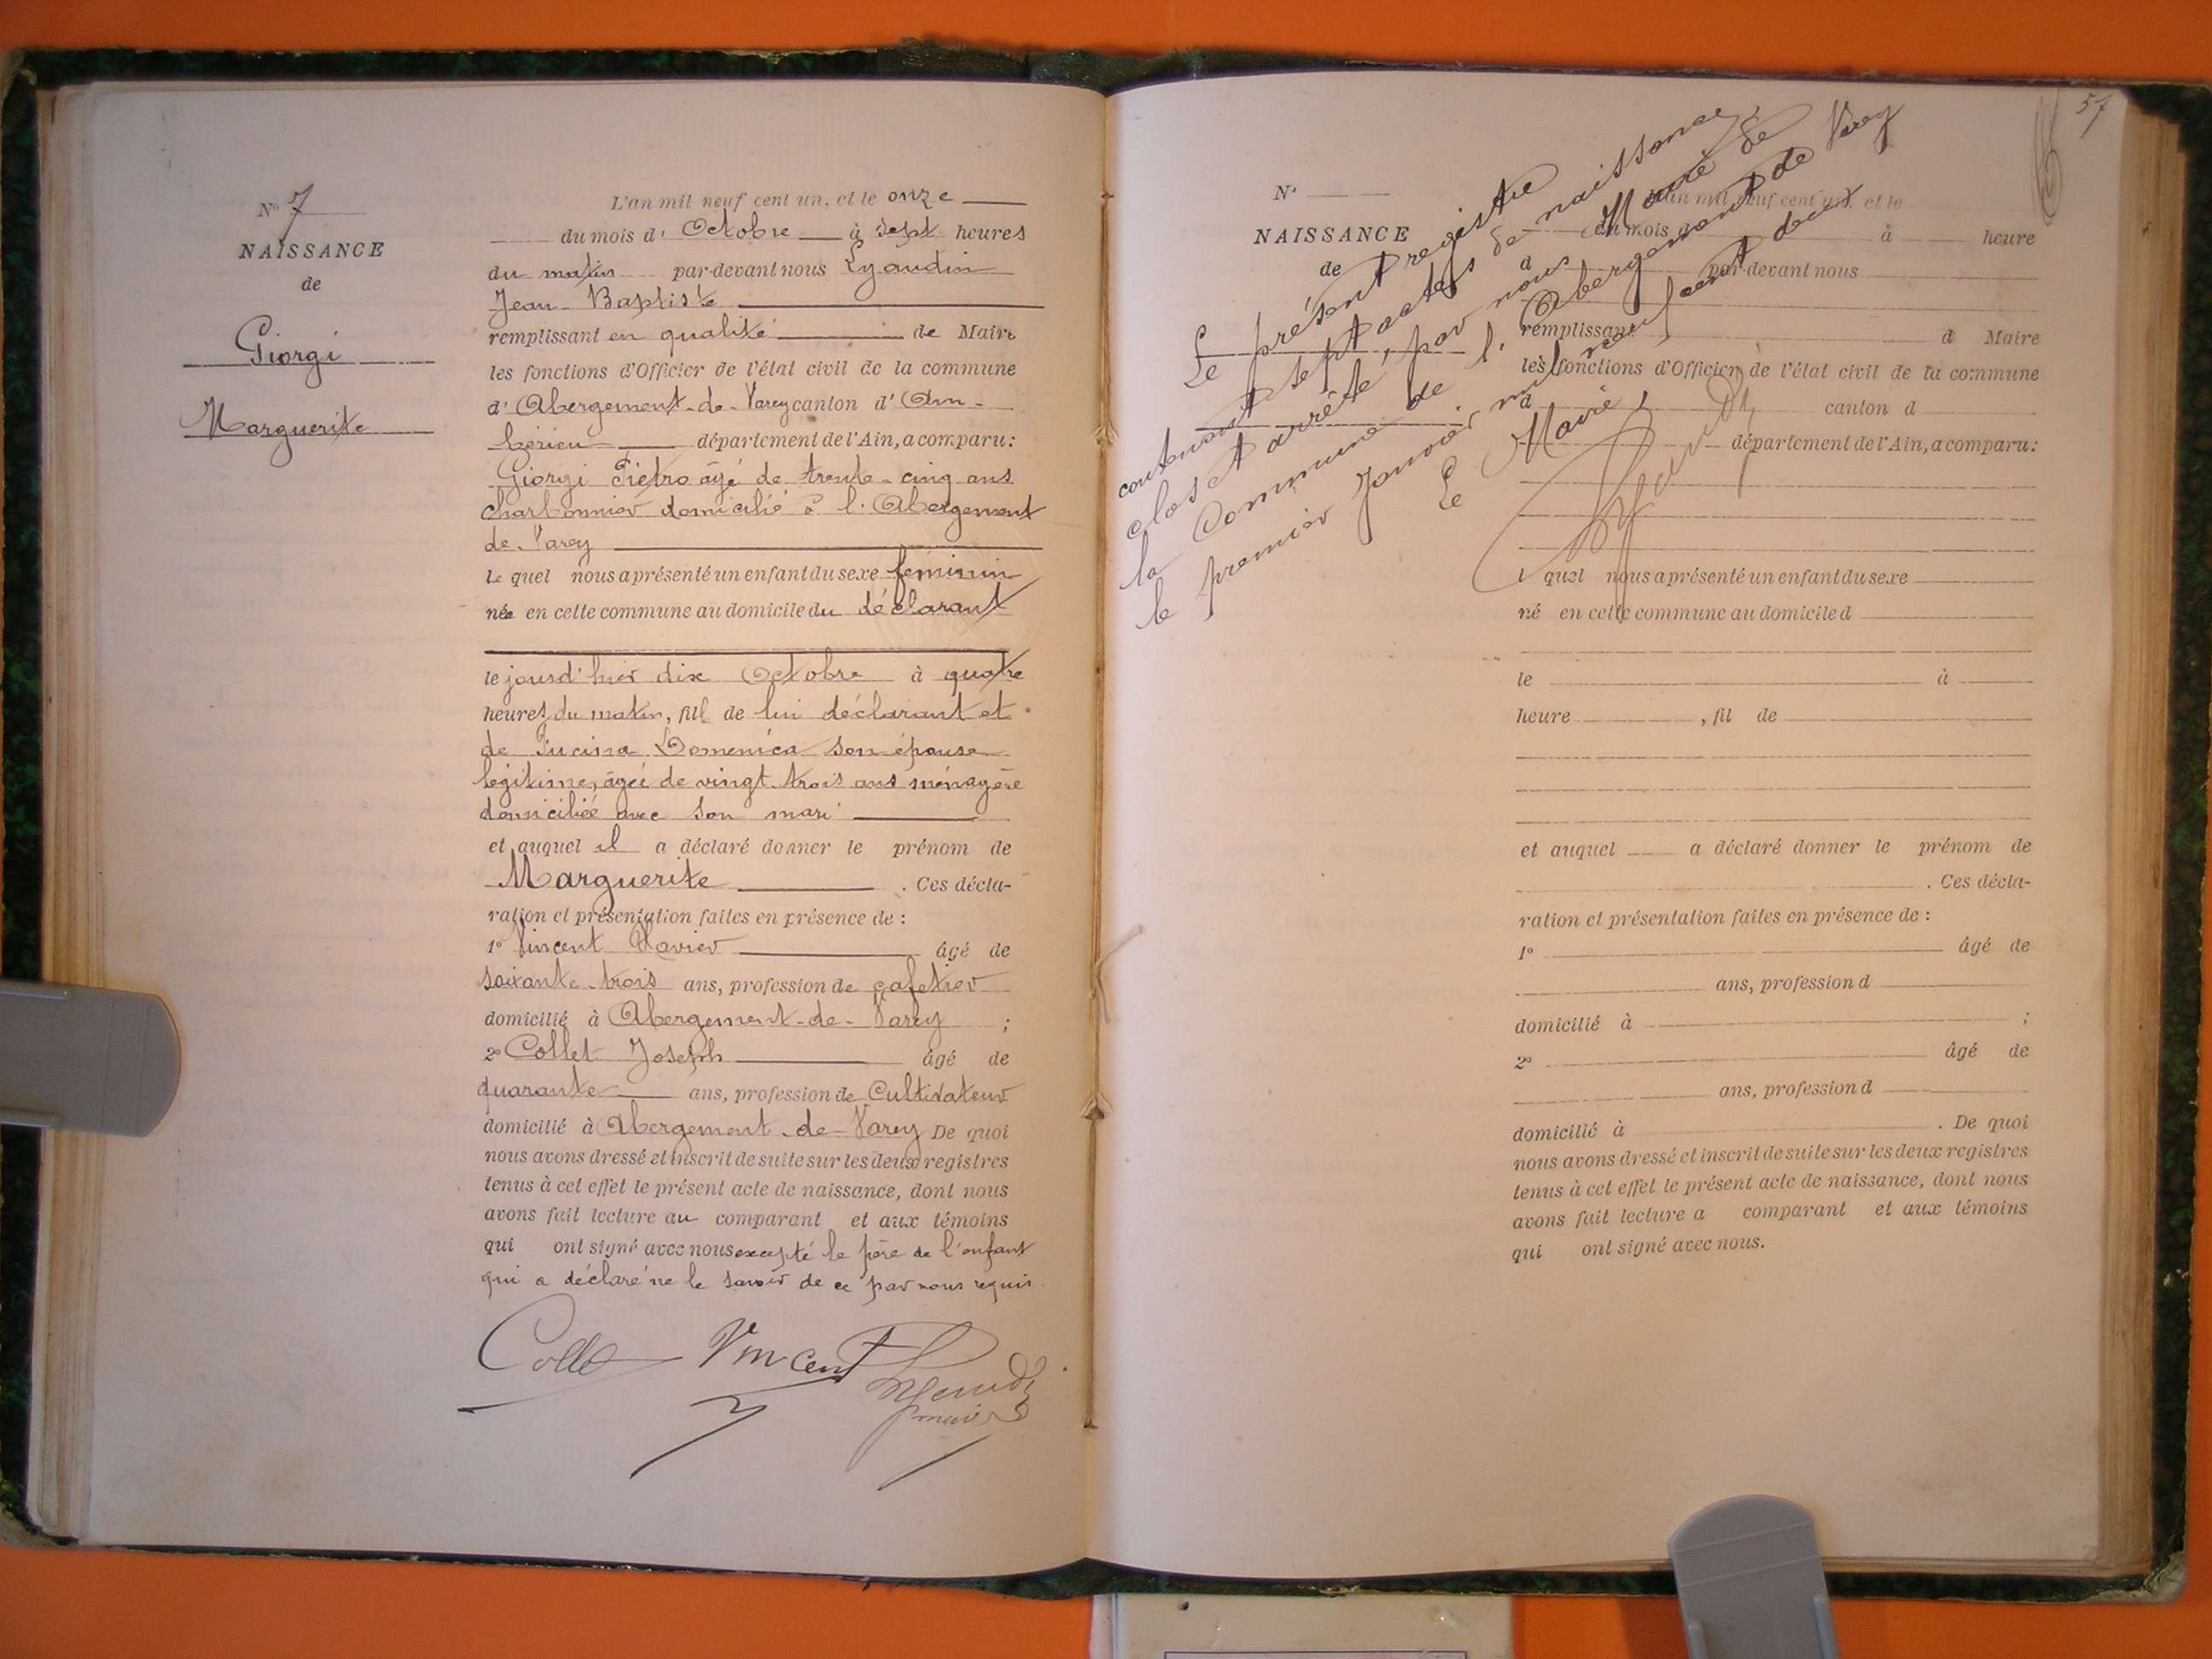 N° 7
NAISSANCE
de
Giorgi
Marguerite
L'an mil neuf cent un, et le onze
du mois d'Octobre à sept heures
du matin par-devant nous Lyaudin
Jean-Baptiste
remplissant en qualité de Maire
les fonctions d'Officier de l'état civil de la commune
d'Abergement-de-Varey canton d'Am-
bérieu département de l'Ain, a comparu:
Giorgi Piétro âgé de trente-cinq ans
charbonnier domicilié à l'Abergement
de-Varey
le quel nous a présenté un enfant du sexe féminin
née en cette commune au domicile du déclarant
le jourd'hier dix Octobre à quatre
heures du matin, fill de lui déclarant et
de Domenica son épouse
légitime, âgée de vingt-trois ans ménagère
domiciliée avec son mari
et auquel il a déclaré donner le prénom de
Marguerite . Ces décla-
ration et présentation faites en présence de :
1° Vincent Xavier âgé de
soixante-trois ans, profession de cafetier
domicilié à Abergement-de-Varey ;
2° Collet Joseph âgé de
quarante ans, profession de Cultivateur
domicilié à Abergement-de-Varey De quoi
nous avons dressé et inscrit de suite sur les deux registres
tenus à cet effet le présent acte de naissance, dont nous
avons fait lecture au comparant et aux témoins
qui ont signé avec nous excepté le père de l'enfant
qui a déclaré ne le savoir de ce par nous requis.
Collet Vincent
57
Le présent registre
contenant sept actes de naissance,
clos et arrêté, par nous Maire de
la Commune de l'Abergement de Varey
le premier Janvier mil neuf cent deux
Le Maire,
N°
NAISSANCE
de
L'an mil neuf cent un, et le
du mois d à heure
d par-devant nous
remplissant d Maire
les fonctions d'Officier de l'état civil de la commune
d canton d
département de l'Ain, a comparu:
l quel nous a présenté un enfant du sexe
né en cette commune au domicile d
le à
heure , fil de
et auquel a déclaré donner le prénom de
. Ces décla-
ration et présentation faites en présence de :
1° âgé de
ans, profession d
domicilié à ;
2° âgé de
ans, profession d
domicilié à . De quoi
nous avons dressé et inscrit de suite sur les deux registres
tenus à cet effet le présent acte de naissance, dont nous
avons fait lecture a comparant et aux témoins
qui ont signé avec nous.